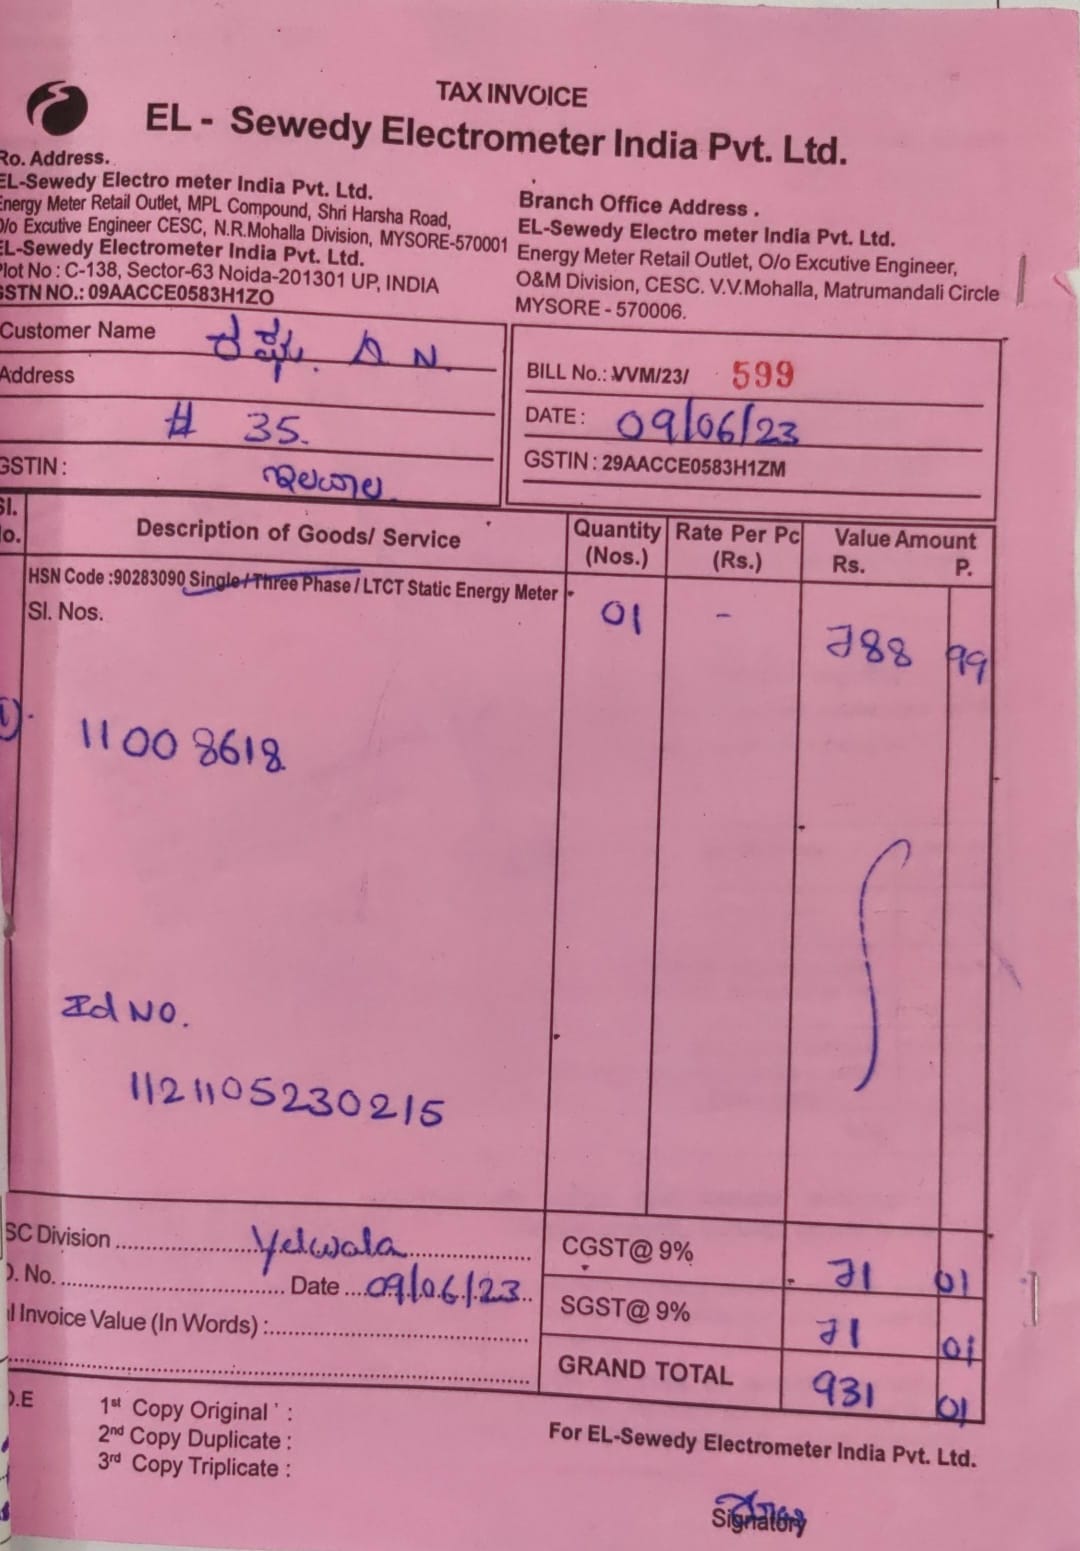 TAX INVOICE
EL - Sewedy Electrometer India Pvt. Ltd.
Ro. Address.
EL-Sewedy Electro meter India Pvt. Ltd.
Energy Meter Retail Outlet, MPL Compound, Shri Harsha Road,
O/o Excutive Engineer CESC, N.R.Mohalla Division, MYSORE-570001
EL-Sewedy Electrometer India Pvt. Ltd.
Plot No : C-138, Sector-63 Noida-201301 UP, INDIA
GSTN NO.: 09AACCE0583H1ZO
Branch Office Address .
EL-Sewedy Electro meter India Pvt. Ltd.
Energy Meter Retail Outlet, O/o Excutive Engineer,
O&M Division, CESC. V.V.Mohalla, Matrumandali Circle
MYSORE - 570006.
Customer Name
Address
# 35.
GSTIN : ಇಲವಾಲ
BILL No.: VVM/23/ 599
DATE : 09/06/23
GSTIN : 29AACCE0583H1ZM
Sl. No. Description of Goods/ Service Quantity (Nos.) Rate Per Pc (Rs.) Value Amount Rs. P.
HSN Code :90283090 Single / Three Phase / LTCT Static Energy Meter 01 - 788 99
Sl. Nos.
1) 11008618
Id NO.
1121105230215
SC Division Yelwala
O. No. Date 09/06/23
l Invoice Value (In Words) :
CGST@ 9% 71 01
SGST@ 9% 71 01
GRAND TOTAL 931 01
O.E
1st Copy Original :
2nd Copy Duplicate :
3rd Copy Triplicate :
For EL-Sewedy Electrometer India Pvt. Ltd.
Signatory